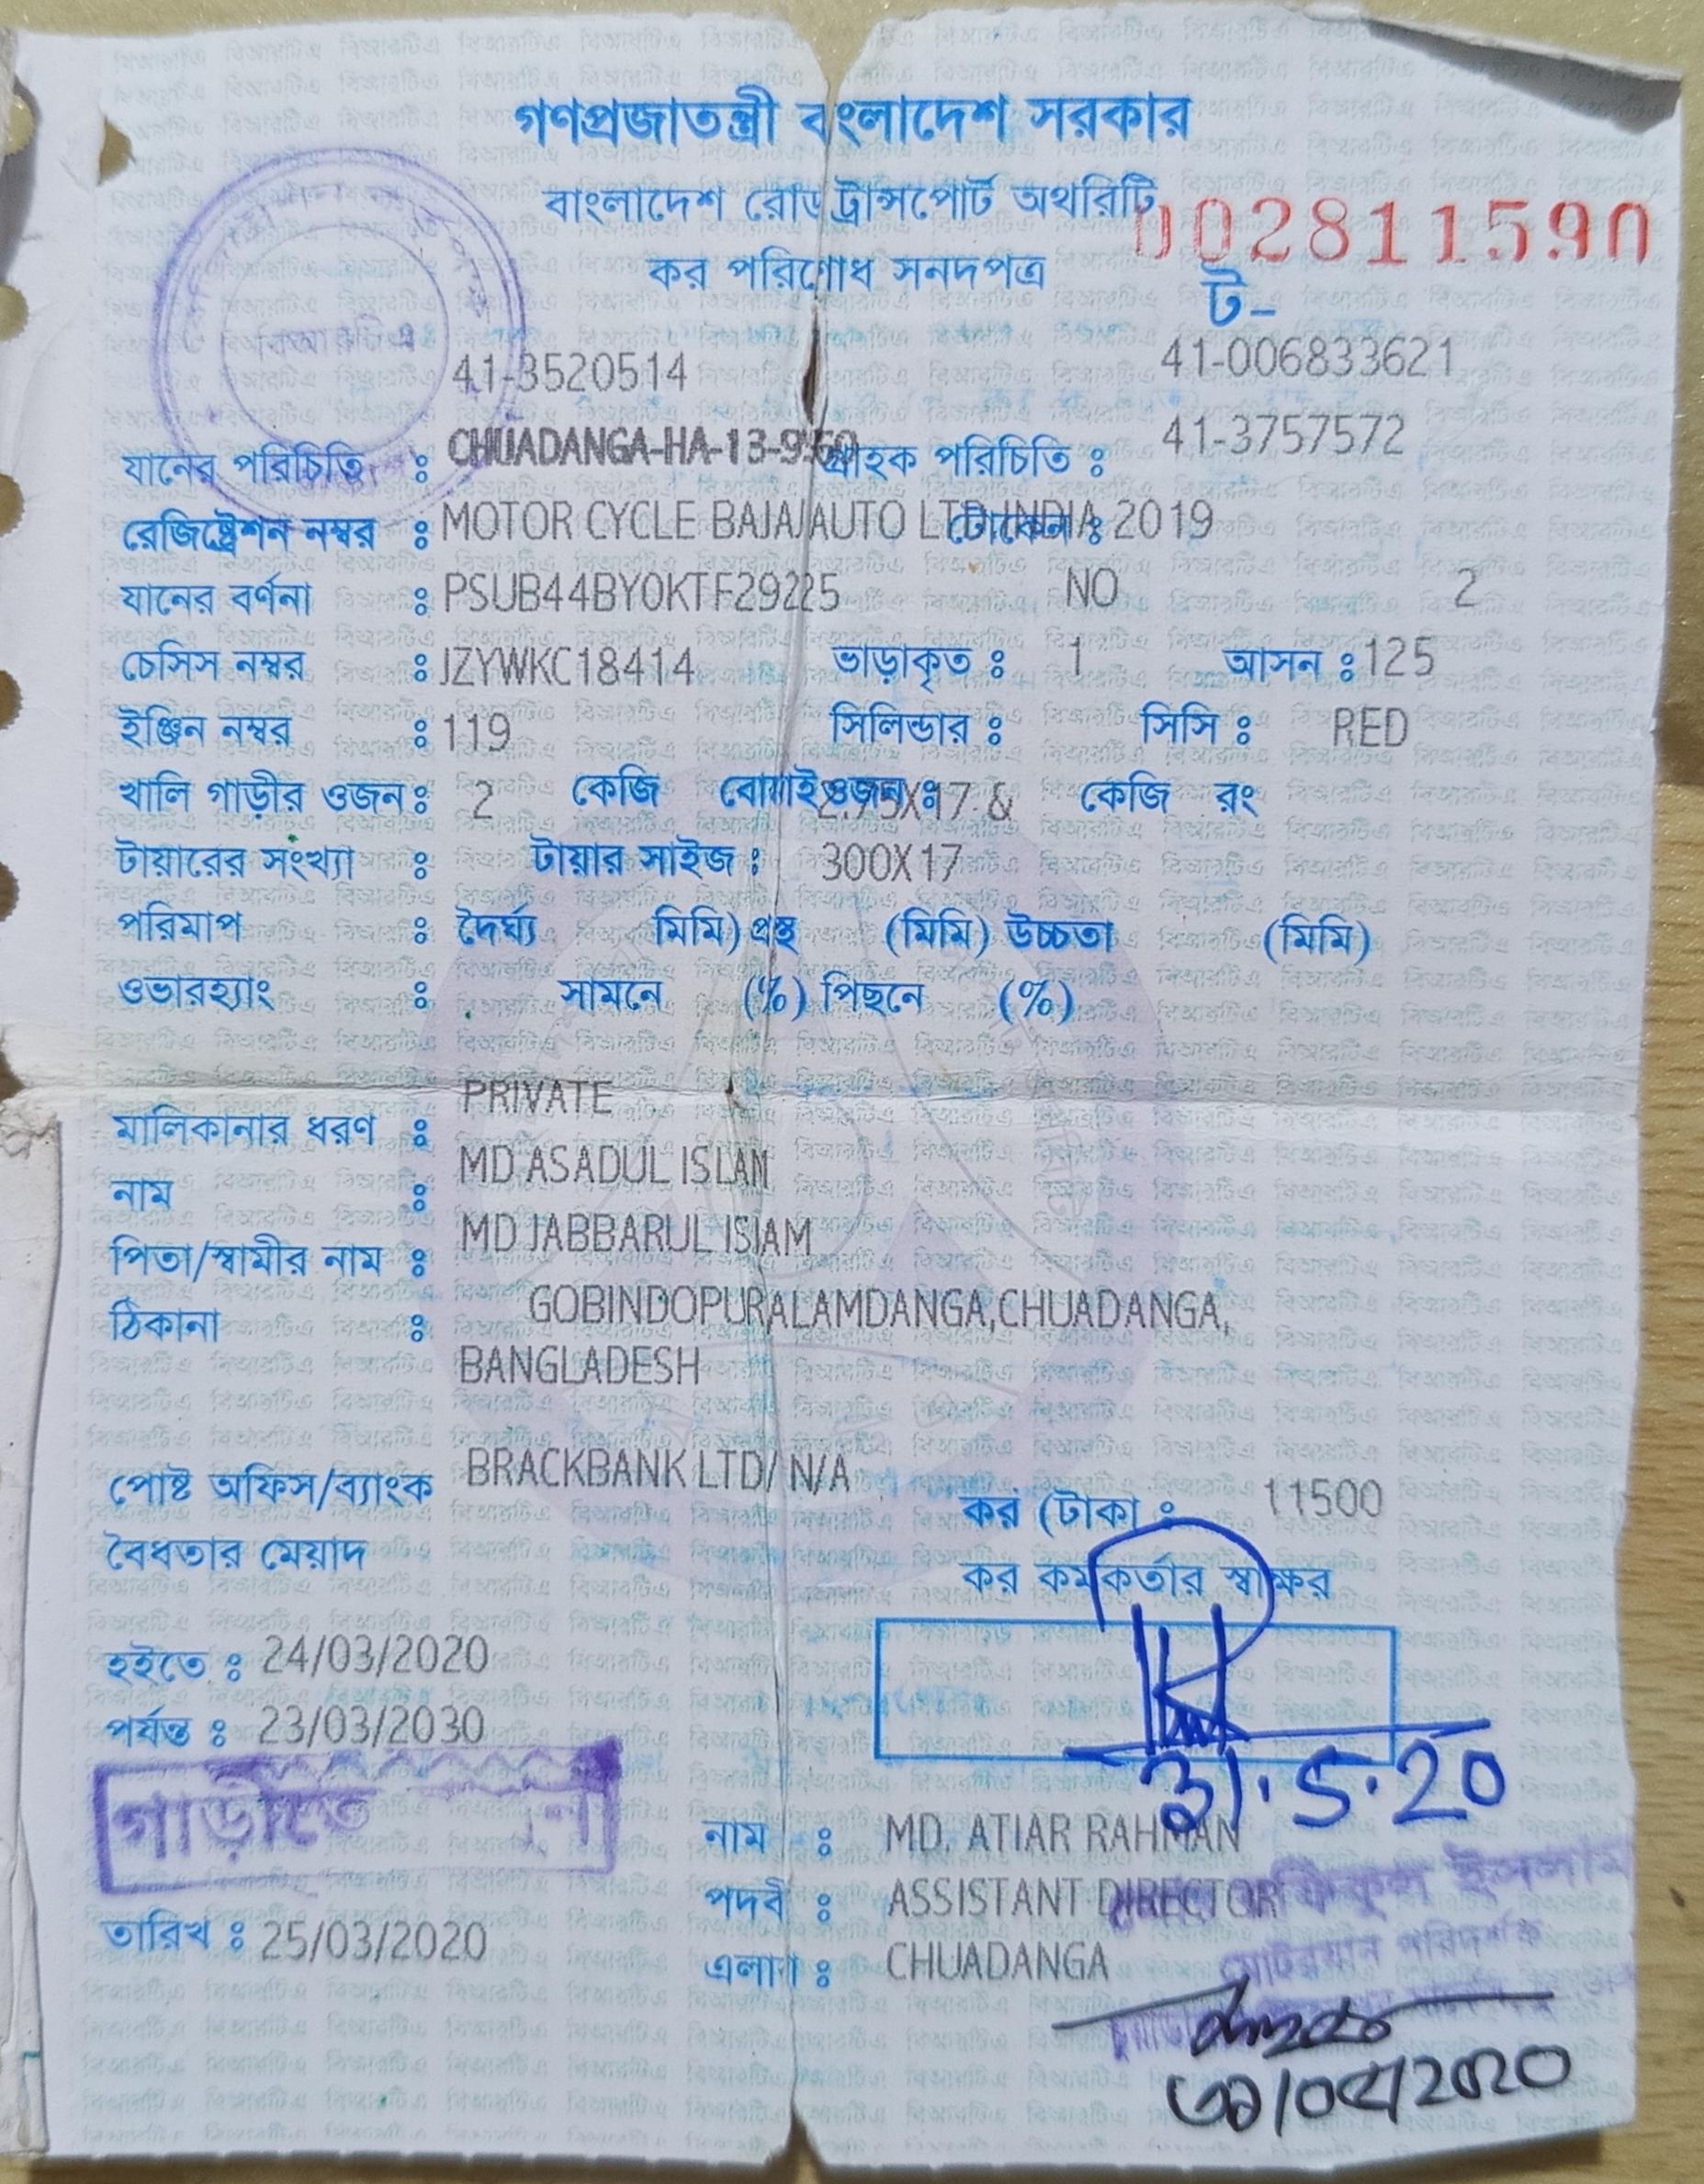 গণপ্রজাতন্ত্রী বাংলাদেশ সরকার
বাংলাদেশ রোড ট্রান্সপোর্ট অথরিটি
002811590
কর পরিশোধ সনদপত্র
ট-
41-3520514 41-006833621
যানের পরিচিতি : CHUADANGA-HA-13- গ্রাহক পরিচিতি : 41-3757572
রেজিষ্ট্রেশন নম্বর : MOTOR CYCLE BAJAJ AUTO LTD INDIA 2019 টোকেন :
যানের বর্ণনা : PSUB44BY0KTF29225 NO 2
চেসিস নম্বর : JZYWKC18414 ভাড়াকৃত : 1 আসন : 125
ইঞ্জিন নম্বর : 119 সিলিন্ডার : সিসি : RED
খালি গাড়ীর ওজন : 2 কেজি বোঝাই ওজন : 2.75X17 & কেজি রং
টায়ারের সংখ্যা : টায়ার সাইজ : 300X17
পরিমাপ : দৈর্ঘ্য মিমি) প্রস্থ (মিমি) উচ্চতা (মিমি)
ওভারহ্যাং : সামনে (%) পিছনে (%)
মালিকানার ধরণ : PRIVATE
নাম : MD ASADUL ISLAM
পিতা/স্বামীর নাম : MD JABBARUL ISLAM
ঠিকানা : GOBINDOPURALAMDANGA,CHUADANGA,
BANGLADESH
পোষ্ট অফিস/ব্যাংক BRACKBANK LTD/ N/A কর (টাকা : 11500
বৈধতার মেয়াদ
কর কর্মকর্তার স্বাক্ষর
হইতে : 24/03/2020
পর্যন্ত : 23/03/2030
31.5.20
গাড়ীতে
নাম : MD. ATIAR RAHMAN
রফিকুল ইসলাম
পদবী : ASSISTANT DIRECTOR
মোটরযান পরিদর্শক
তারিখ : 25/03/2020
এলাকা : CHUADANGA
/2020